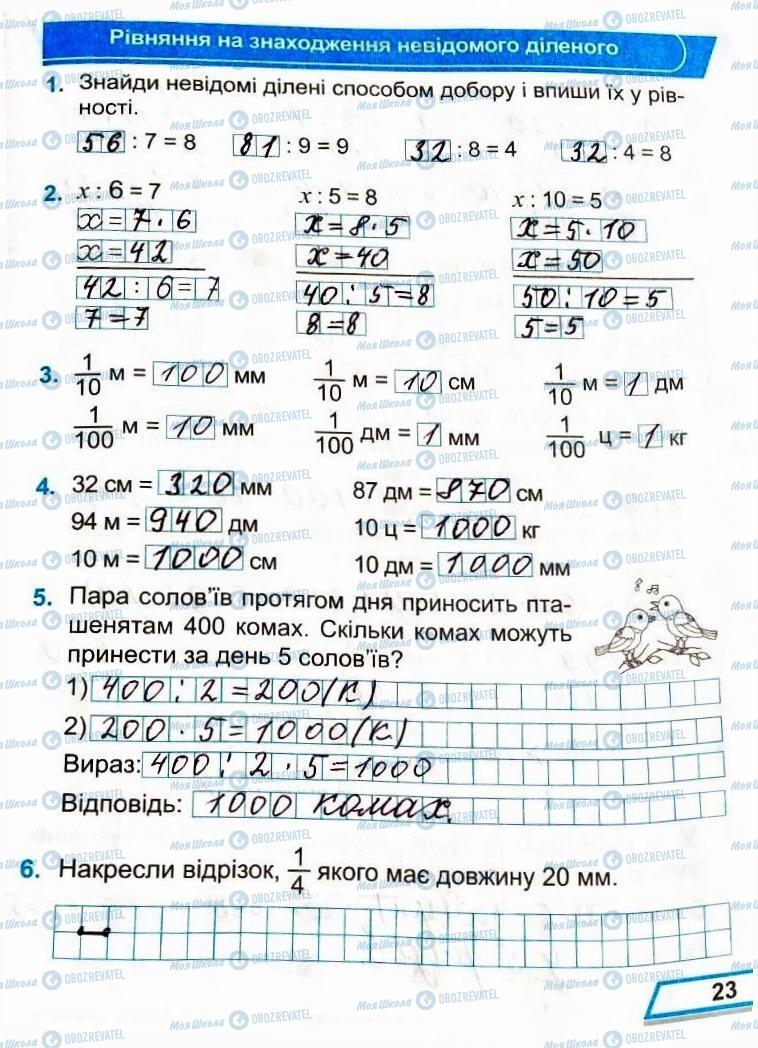 Рівняння на знаходження невідомого діленого
1. Знайди невідомі ділені способом добору і впиши їх у рів-
ності.
56 : 7 = 8 81 : 9 = 9 32 : 8 = 4 32 : 4 = 8
2. x : 6 = 7 x : 5 = 8 x : 10 = 5
x = 7 · 6 x = 8 · 5 x = 5 · 10
x = 42 x = 40 x = 50
42 : 6 = 7 40 : 5 = 8 50 : 10 = 5
7 = 7 8 = 8 5 = 5
3. 1/10 м = 100 мм 1/10 м = 10 см 1/10 м = 1 дм
1/100 м = 10 мм 1/100 дм = 1 мм 1/100 ц = 1 кг
4. 32 см = 320 мм 87 дм = 870 см
94 м = 940 дм 10 ц = 1000 кг
10 м = 1000 см 10 дм = 1000 мм
5. Пара солов’їв протягом дня приносить пта-
шенятам 400 комах. Скільки комах можуть
принести за день 5 солов’їв?
1) 400 : 2 = 200 (К)
2) 200 · 5 = 1000 (К)
Вираз: 400 : 2 · 5 = 1000
Відповідь: 1000 комах
6. Накресли відрізок, 1/4 якого має довжину 20 мм.
23
МояШкола OBOZREVATEL